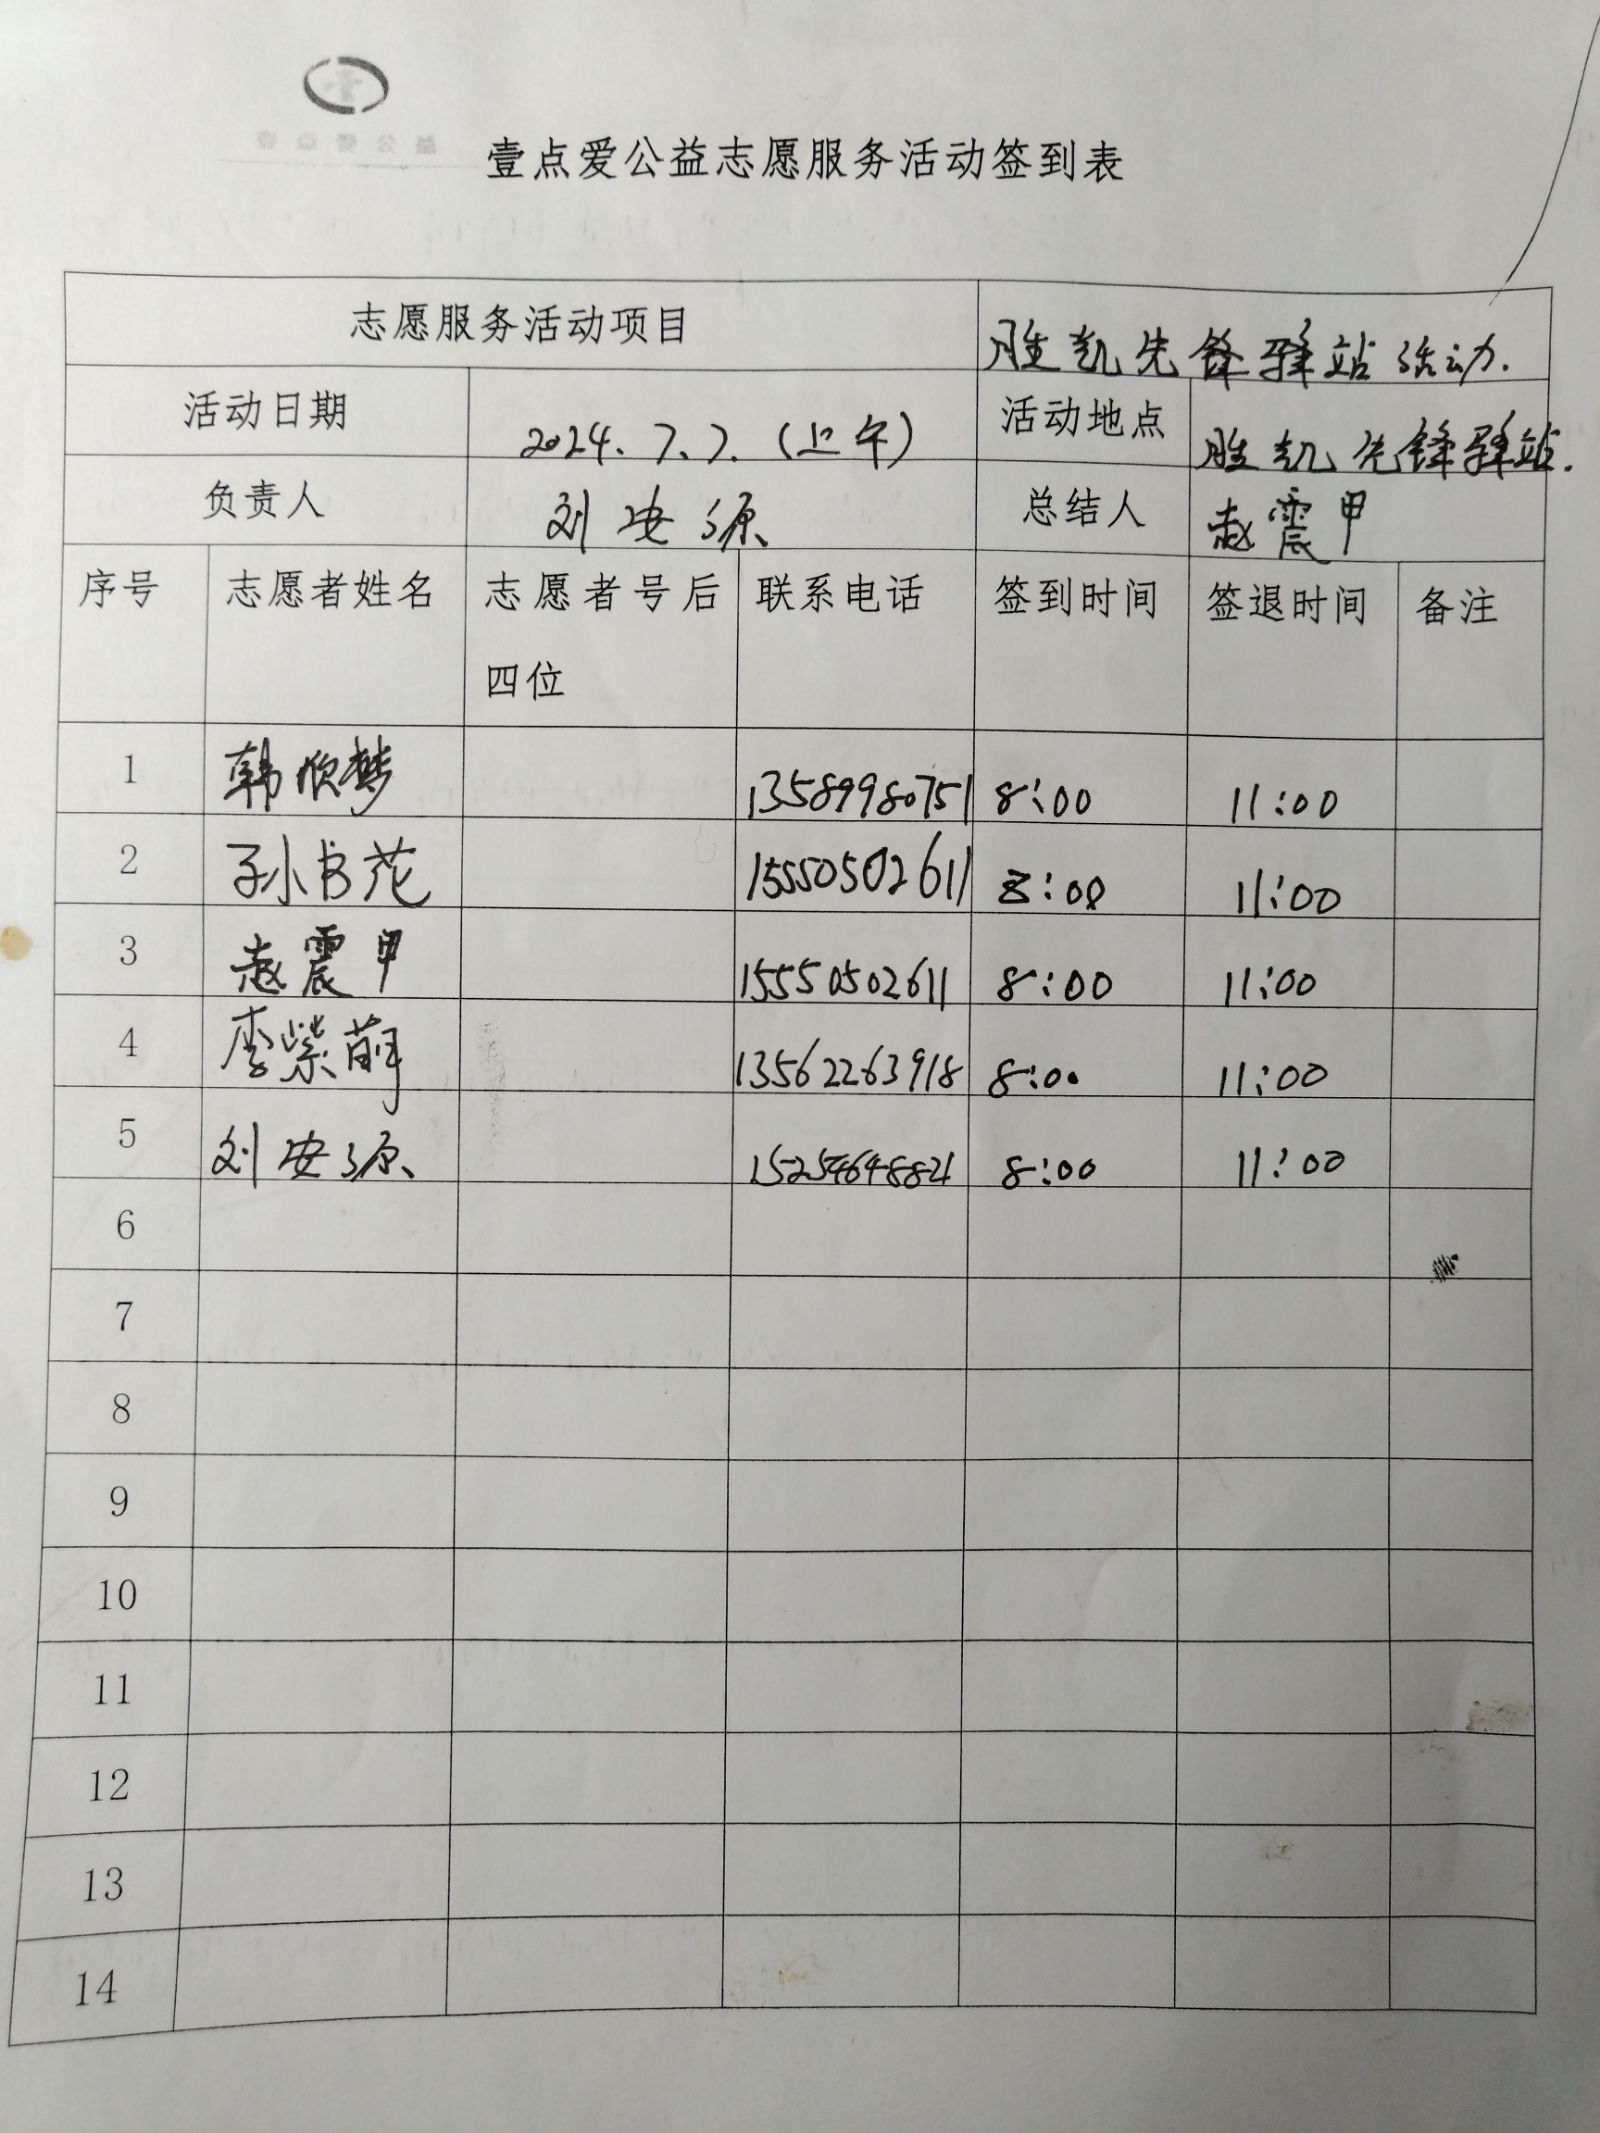 壹点爱公益志愿服务活动签到表
志愿服务活动项目 胜凯先锋驿站活动.
活动日期 2024.7.7.(上午) 活动地点 胜凯先锋驿站.
负责人 刘安源 总结人 赵震甲
序号 志愿者姓名 志愿者号后 联系电话 签到时间 签退时间 备注
四位
1 韩欣梦 13589980751 8:00 11:00
2 孙书花 15550502611 8:00 11:00
3 赵震甲 15550502611 8:00 11:00
4 李紫萌 13562263918 8:00 11:00
5 刘安源 15254648821 8:00 11:00
6
7
8
9
10
11
12
13
14